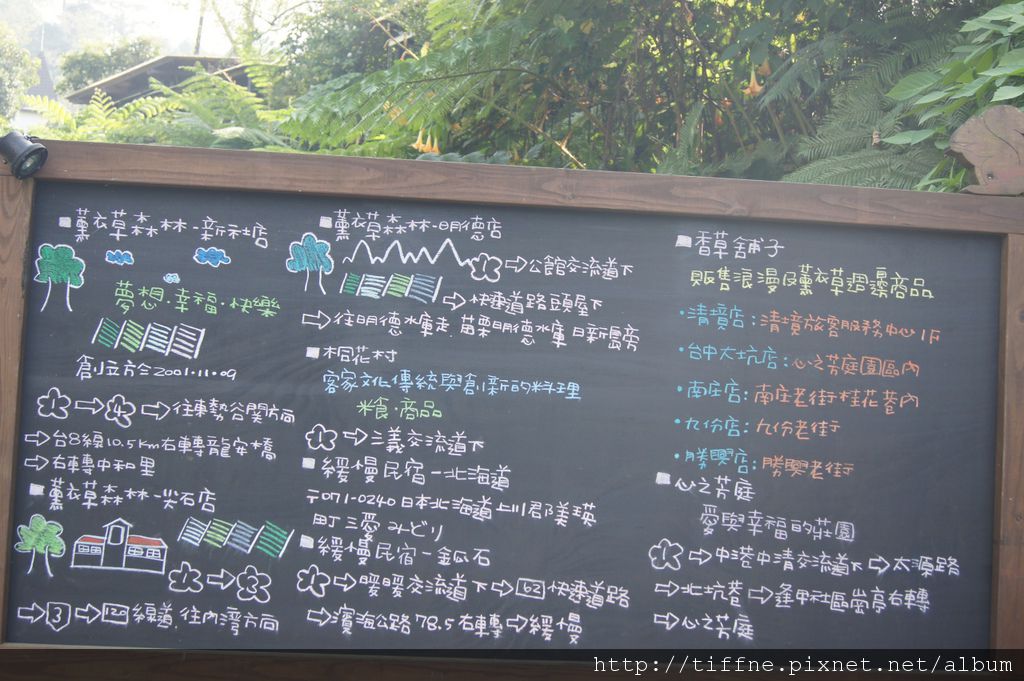 ■薰衣草森林-新社店
夢想·幸福·快樂
創立於2001·11·09
1→4→往東勢谷関方面
→台8線10.5Km右轉龍安橋
→右轉中和里
■薰衣草森林-尖石店
1→2
→3→120線道.往内湾方向
■薰衣草森林-明德店
1→公館交流道下
→快速道路頭屋下
→往明德水庫走.苗栗明德水庫日新島旁
■桐花村
客家文化傳統與創新的料理
米食·商品
1→三義交流道下
■緩慢民宿-北海道
〒071-0240日本北海道上川君隊美瑛
町三愛みどり
■緩慢民宿-金瓜石
1→暖暖交流道下→62快速道路
→濱海公路78.5右轉→緩慢
■香草舖子
販售浪漫及薰衣草週邊商品
·清境店:清境旅客服務中心1F
·台中大坑店:心之芳庭園區内
·南庄店:南庄老街桂花巷内
·九份店:九份老街
·勝興店:勝興老街
■心之芳庭
愛與幸福的莊園
1→中港中清交流道下→太源路
→北坑巷→逢甲社區崗亭右轉
→心之芳庭
http://tiffne.pixnet.net/album